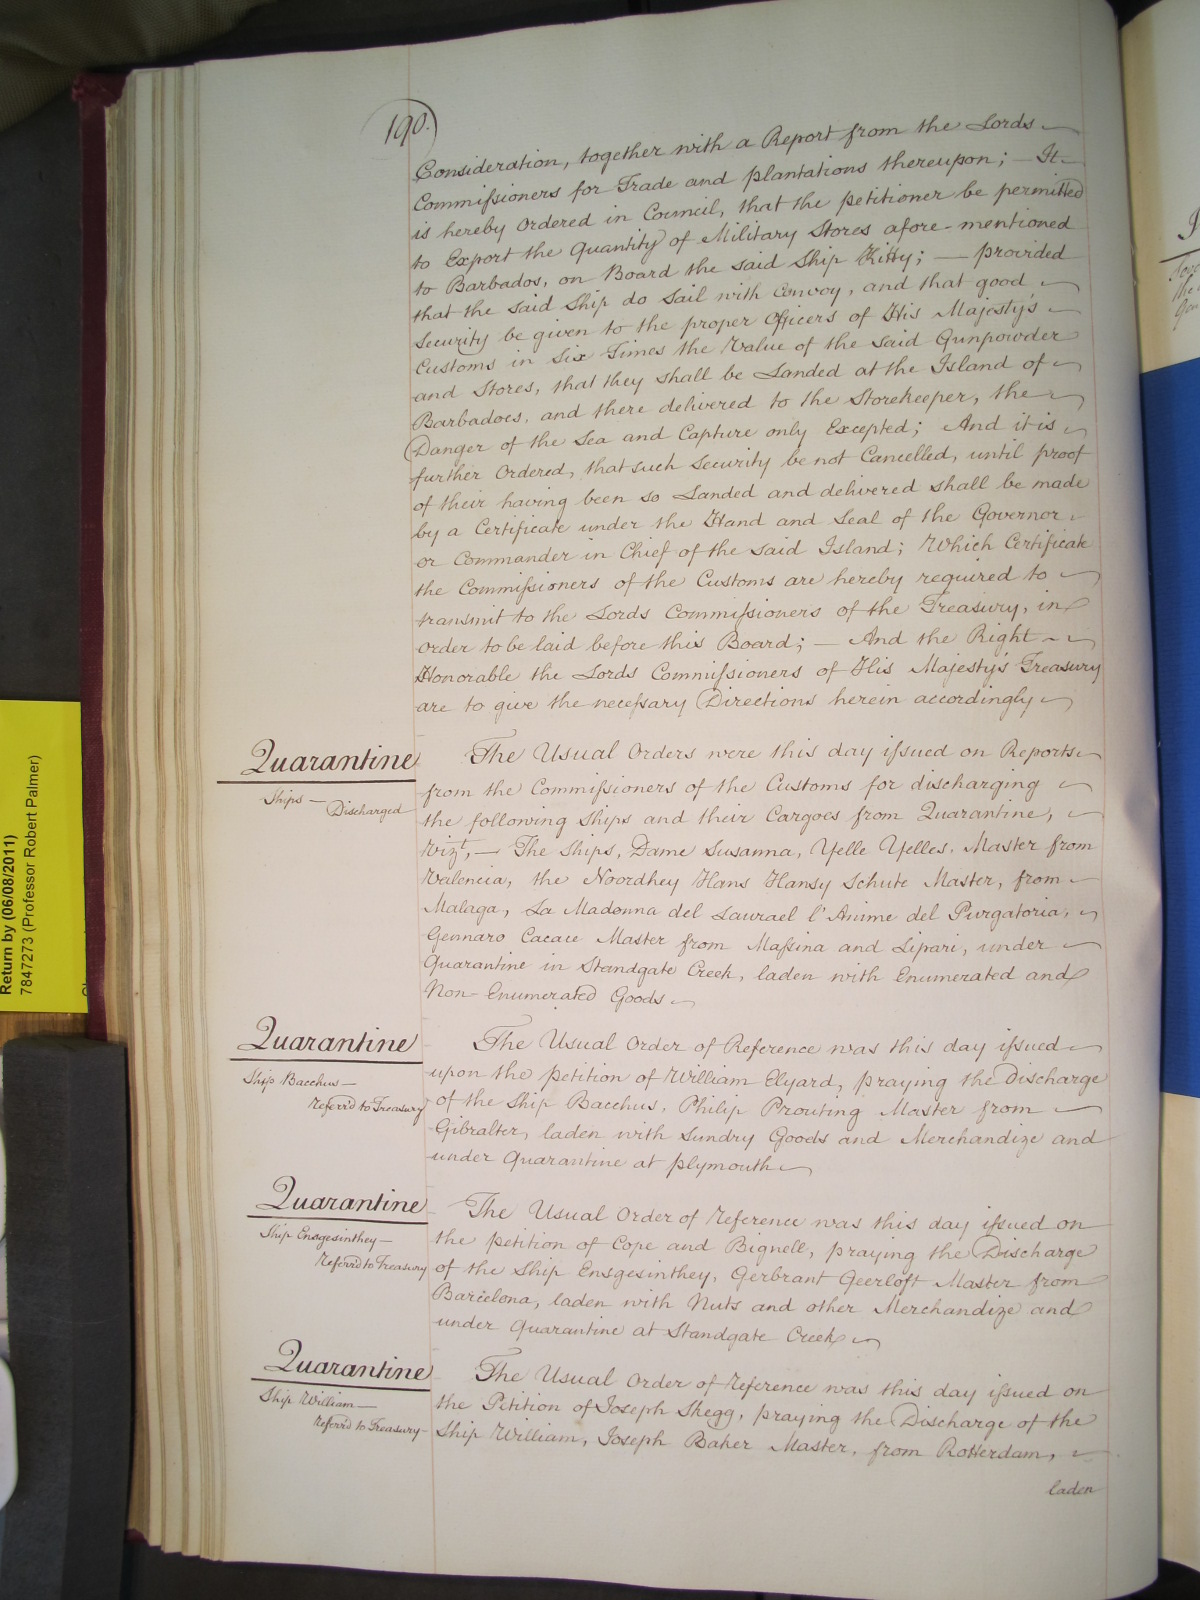 190.
Consideration, together with a Report from the Lords
Commissioners for Trade and plantations thereupon; — It
is hereby Ordered in Council, that the petitioner be permitted
to Export the Quantity of Military Stores afore-mentioned
to Barbados, on Board the said Ship Kitty; — provided
that the said Ship do Sail with Convoy, and that good
Security be given to the proper Officers of His Majesty's
Customs in Six Times the Value of the said Gunpowder
and Stores, that they shall be Landed at the Island of
Barbadoes, and there delivered to the Storekeeper, the
Danger of the Sea and Capture only Excepted; And it is
further Ordered, that such Security be not Cancelled, until proof
of their having been so Landed and delivered shall be made
by a Certificate under the Hand and Seal of the Governor
or Commander in Chief of the said Island; Which Certificate
the Commissioners of the Customs are hereby required to
transmit to the Lords Commissioners of the Treasury, in
order to be laid before this Board; — And the Right
Honorable the Lords Commissioners of His Majesty's Treasury
are to give the necessary Directions herein accordingly
Quarantine
Ships —
Discharged
The Usual Orders were this day issued on Reports
from the Commissioners of the Customs for discharging
the following Ships and their Cargoes from Quarantine,
Vizt, — The Ships, Dame Susanna, Yelle Yelles, Master from
Valencia, the Noordhey Hans Hansy Schute Master, from
Malaga, La Madonna del Laurael l'Anime del Purgatoria,
Gennaro Cacace Master from Massina and Lipari, under
Quarantine in Standgate Creek, laden with Enumerated and
Non-Enumerated Goods
Quarantine
Ship Bacchus —
Referr'd to Treasury
The Usual Order of Reference was this day issued
upon the petition of William Elyard, praying the Discharge
of the Ship Bacchus, Philip Prouting Master from
Gibralter, laden with Sundry Goods and Merchandize and
under Quarantine at plymouth
Quarantine
Ship Ensgesinthey —
Referr'd to Treasury
The Usual Order of Reference was this day issued on
the petition of Cope and Bignell, praying the Discharge
of the Ship Ensgesinthey, Gerbrant Geerloft Master from
Barcelona, laden with Nuts and other Merchandize and
under Quarantine at Standgate Creek
Quarantine
Ship William —
Referr'd to Treasury
The Usual Order of Reference was this day issued on
the Petition of Joseph Shegg, praying the Discharge of the
Ship William, Joseph Baker Master, from Rotterdam,
laden
Return by (06/08/2011)
7847273 (Professor Robert Palmer)